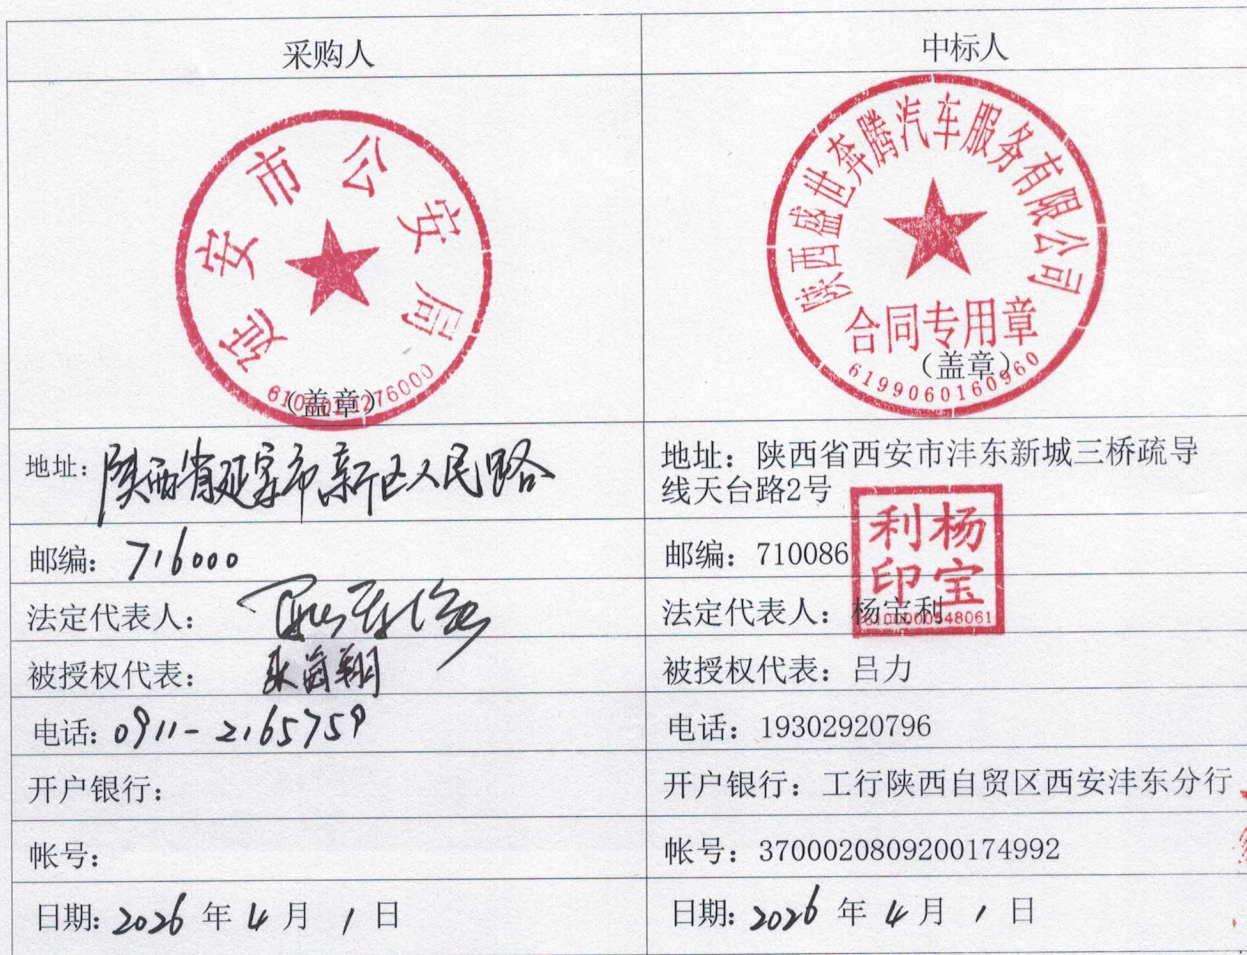 采购人
中标人
延安市公安局
(盖章)
陕西盛世奔腾汽车服务有限公司
合同专用章
(盖章)
6199060160960
地址：陕西省延安市新区人民路
地址：陕西省西安市沣东新城三桥疏导
线天台路2号
杨宝利印
邮编：716000
邮编：710086
法定代表人：
法定代表人：杨宝利
被授权代表：
被授权代表：吕力
电话：0911-2165759
电话：19302920796
开户银行：
开户银行：工行陕西自贸区西安沣东分行
帐号：
帐号：3700020809200174992
日期：2026 年 4 月 1 日
日期：2026 年 4 月 1 日